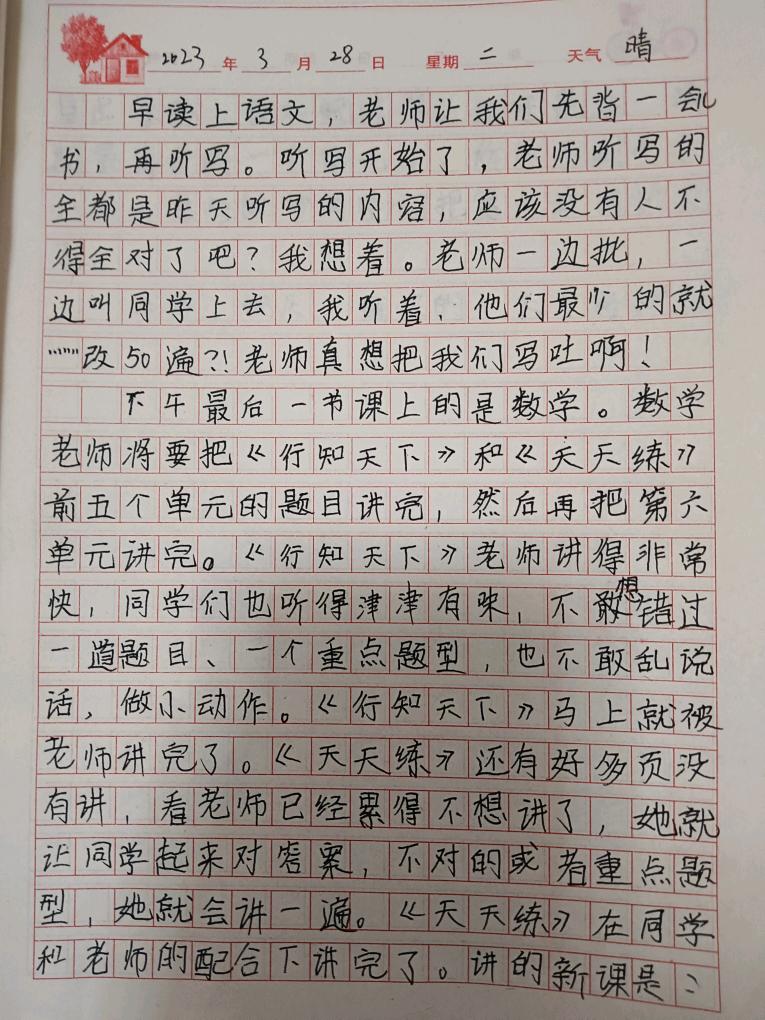 2023年3月28日 星期二 天气晴
早读上语文，老师让我们先背一会儿
书，再听写。听写开始了，老师听写的
全都是昨天听写的内容，应该没有人不
得全对了吧？我想着。老师一边批，一
边叫同学上去，我听着，他们最少的就
……改50遍?!老师真想把我们写吐啊！
下午最后一书课上的是数学。数学
老师将要把《行知天下》和《天天练》
前五个单元的题目讲完，然后再把第六
单元讲完。《行知天下》老师讲得非常
快，同学们也听得津津有味，不敢想错过
一道题目、一个重点题型，也不敢乱说
话，做小动作。《行知天下》马上就被
老师讲完了。《天天练》还有好多页没
有讲，看老师已经累得不想讲了，她就
让同学起来对答案，不对的或者重点题
型，她就会讲一遍。《天天练》在同学
和老师的配合下讲完了。讲的新课是：